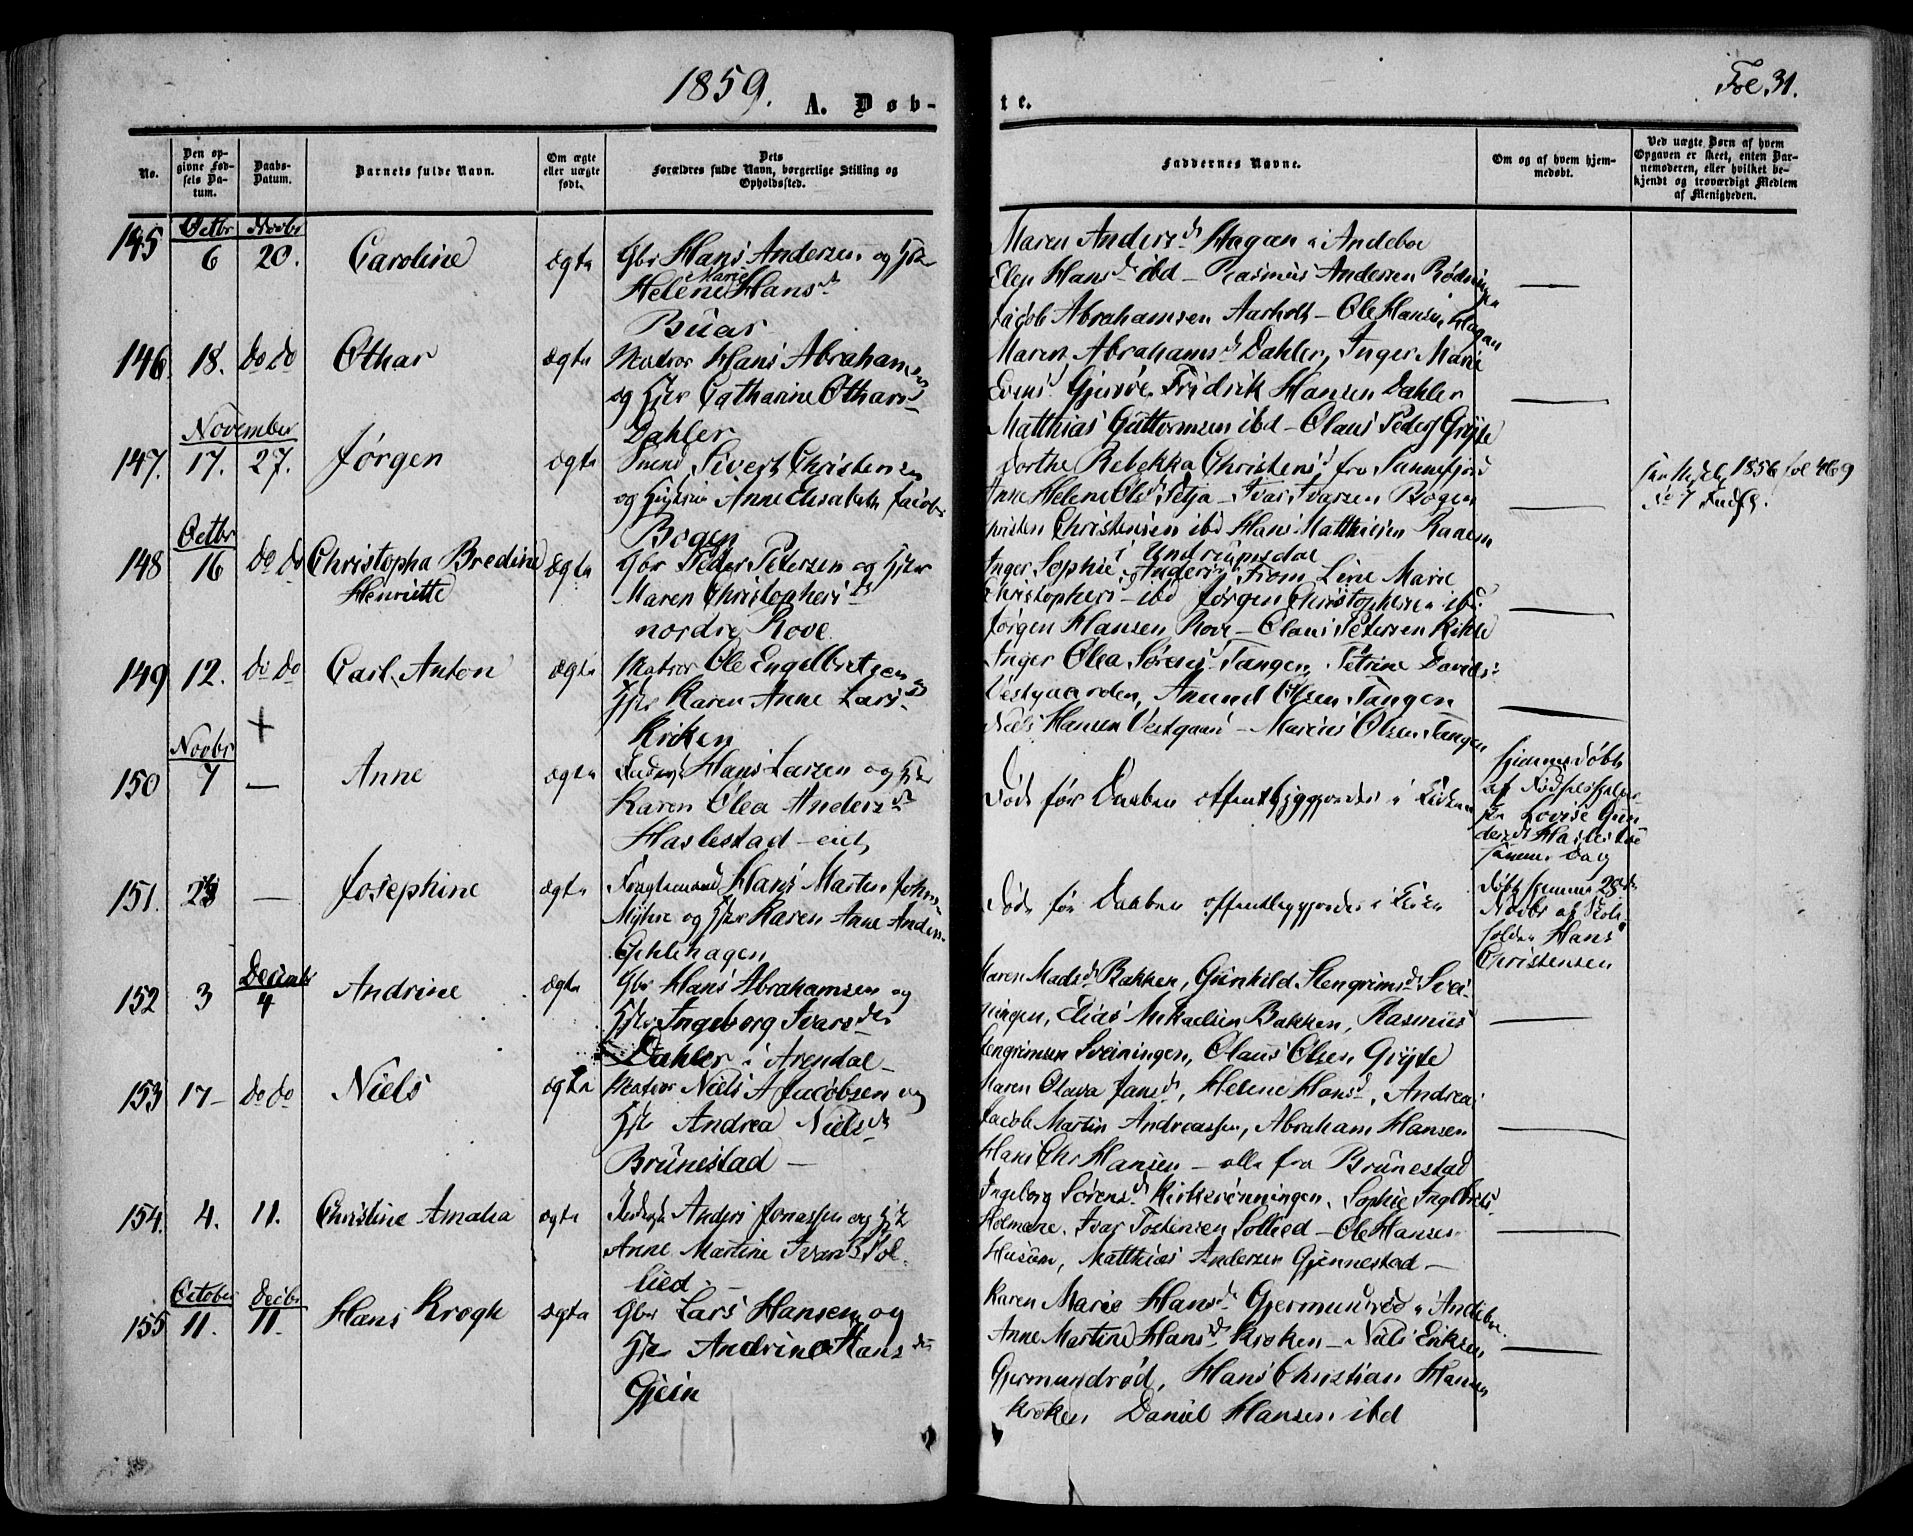 1859.
A. Døb-
te.
Fol. 31.
No.
Den op-
givne Fød-
sels Da-
tum.
Daabs-
Datum.
Barnets fulde Navn.
Om ægte
eller uægte
født.
Dets
Forældres fulde Navn, borgerlige Stilling og
Opholdssted.
Faddernes Navne.
Om og af hvem hjem-
medøbt.
Ved uægte Børn af hvem
Opgaven er skeet, enten Bar-
nemoderen, eller hvilket be-
kjendt og troværdigt Medlem
af Menigheden.
145
Octbr
6
Novbr
20.
Caroline
ægte
Gbr Hans Andersen og Hstr
Helene Marie Hansd
Buar
Maren Andersd Hagan i Andeboe
Hansd ibd – Rasmus Andersen Rødningen
Jacob Abrahamsen Aarholt – Ole Hansen Hagan
146
18.
do do
Othar
ægte
Matros Hans Abrahamsen
og Hstr Catharine Othars
Dahler
Maren Abrahamsd Dahler, Inger Marie
Evensd Gjersøe Fridrik Hansen Dahler
Matthias Guttormsen ibd – Olaus Peders Gryte
147.
November
17.
27.
Jørgen
ægte
Sivert Christensen
og Anne Elisabeth Jacobs
Bogen
Dorthe Rebekka Christensd fra Sannefjord
Anne Helene Olsd – Ivar Ivarsen Bogen
Christen Christensen ibd Hans Matthiesen Raaen
i Undrumsdal
1856 fol 469
No 7
148
Octbr
16
do do
Christopha Bredine
Henriette
ægte
Gbr Peder Petersen og Hstr
Maren Christophersd
nordre Rove
Inger Sophie Andersd From Line Marie
Christophersd – ibd Jørgen Christophersen ibd
Jørgen Hansen Rove – Olaus Petersen
149
12.
do do
Carl Anton
ægte
Matros Ole Engelbretsen og
Hstr Karen Anne Larsd
Krøken
Inger Olea Sørensd Tangen, Petrine Davids
Vestgaarden, Amund Olsen Tangen
Niels Hansen Vestgaard – Marius Olsen Tangen
150
Novbr
7
+
—
Anne
ægte
Inderst Hans Larsen og Hstr
Karen Olea Andersd
Haslestad – eiet
Død før Daaben offentliggjordes i Kirken
hjemmedøbt
af Fødselshjelper-
ske Lovise Gun
dersd Haslestad
samme Dag
151.
23
—
Josephine
ægte
Fragtemand Hans Martin Johns
Myhre og Hstr Karen Anne Anders
Gehlehagen
Død før Daaben offentliggjordes i Kirken
Døbt hjemme 23de
Novbr af Skole
holder Hans
Christensen
152
3
Decembr
4
Andrine
ægte
Gbr Hans Abrahamsen og
Hstr Ingeborg Ivarsdtr
Dahler i Arendal –
Maren Madsd Bakken, Gunhild Stengrimsd Svei-
ningen, Elias Mikaelsen Bakken, Rasmus
Stengrimsen Sveiningen, Olaus Olsen Gryte
153
17 –
do do
Niels
ægte
Matros Niels A Jacobsen og
Hstr Andrea Nielsd
Brunestad –
Maren Olava Jansd, Helene Hansd, Andreas
Jacob Martin Andreassen, Abraham Hansen
Hans Chr Hansen – alle fra Brunestad
154.
4.
11.
Christine Amalia
ægte
Inderst Anders Jonassen og Hstr
Anne Martine Ivarsd Sol-
lied. –
Ingeborg Sørensd Kirkerønningen, Sophie Ingebretsd
Holmane, Ivar Tostensen Sollied – Ole Hansen
Husom, Matthias Andersen Gjennestad –
155
October
11.
Decbr
11.
Hans Krogh
ægte
Gbr Lars Hansen og
Hstr Andrine Hansdtr
Gjein
Karen Marie Hansd Gjermundrød i Andeboe.
Anne Martine Hansd Kroken – Niels Eriksen
Gjermundrød, Hans Christian Hansen
Kroken Daniel Hansen ibd